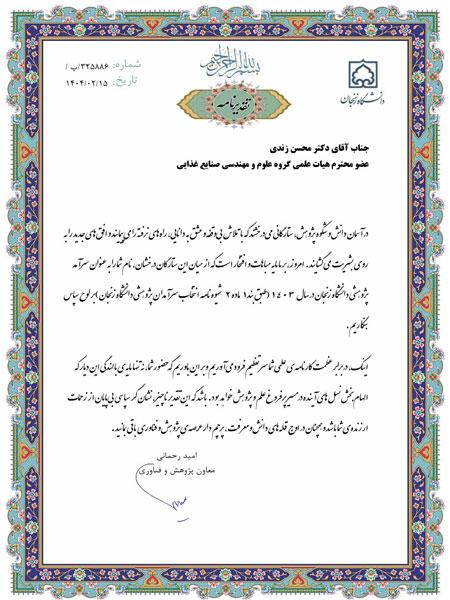 بسم الله الرحمن الرحیم
شماره: ۳۲۵۸۸۶/پ/
تاریخ: ۱۴۰۴/۰۲/۱۵
دانشگاه زنجان
تقدیرنامه
جناب آقای دکتر محسن زندی
عضو محترم هیات علمی گروه علوم و مهندسی صنایع غذایی
در آسمان دانش و شکوه پژوهش، ستارگانی می درخشند که با تلاش بی وقفه و عشق به دانایی، راه های نرفته را می پیمایند و افق های جدید را به
روی بشریت می گشایند. امروز، بر ما مایه مباهات و افتخار است که از میان این ستارگان درخشان، نام شما را به عنوان سرآمد
پژوهشی دانشگاه زنجان در سال ۱۴۰۳ (طبق بند ۱ ماده ۲ شیوه نامه انتخاب سرآمدان پژوهشی دانشگاه زنجان) بر لوح سپاس
بنگاریم.
اینک، در برابر عظمت کارنامه ی علمی شما سر تعظیم فرود می آوریم و بر این باوریم که حضور شما، نه تنها مایه ی بالندگی این دیار که
الهام بخش نسل های آینده در مسیر پر فروغ علم و پژوهش خواهد بود. باشد که این تقدیر ناچیز، نشان گر سپاسی بی پایان از زحمات
ارزنده ی شما باشد و همچنان در اوج قله های دانش و معرفت، پرچم دار عرصه ی پژوهش و فناوری باقی بمانید.
امید رحمانی
معاون پژوهش و فناوری